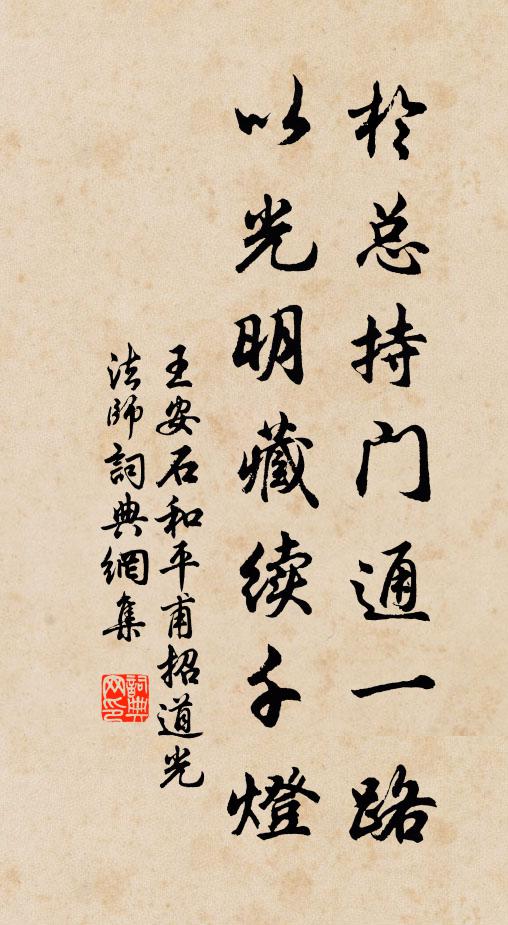 於总持门通一路
以光明藏续千燈
王安石和平甫招道光
法師詞典網集
詞典网印